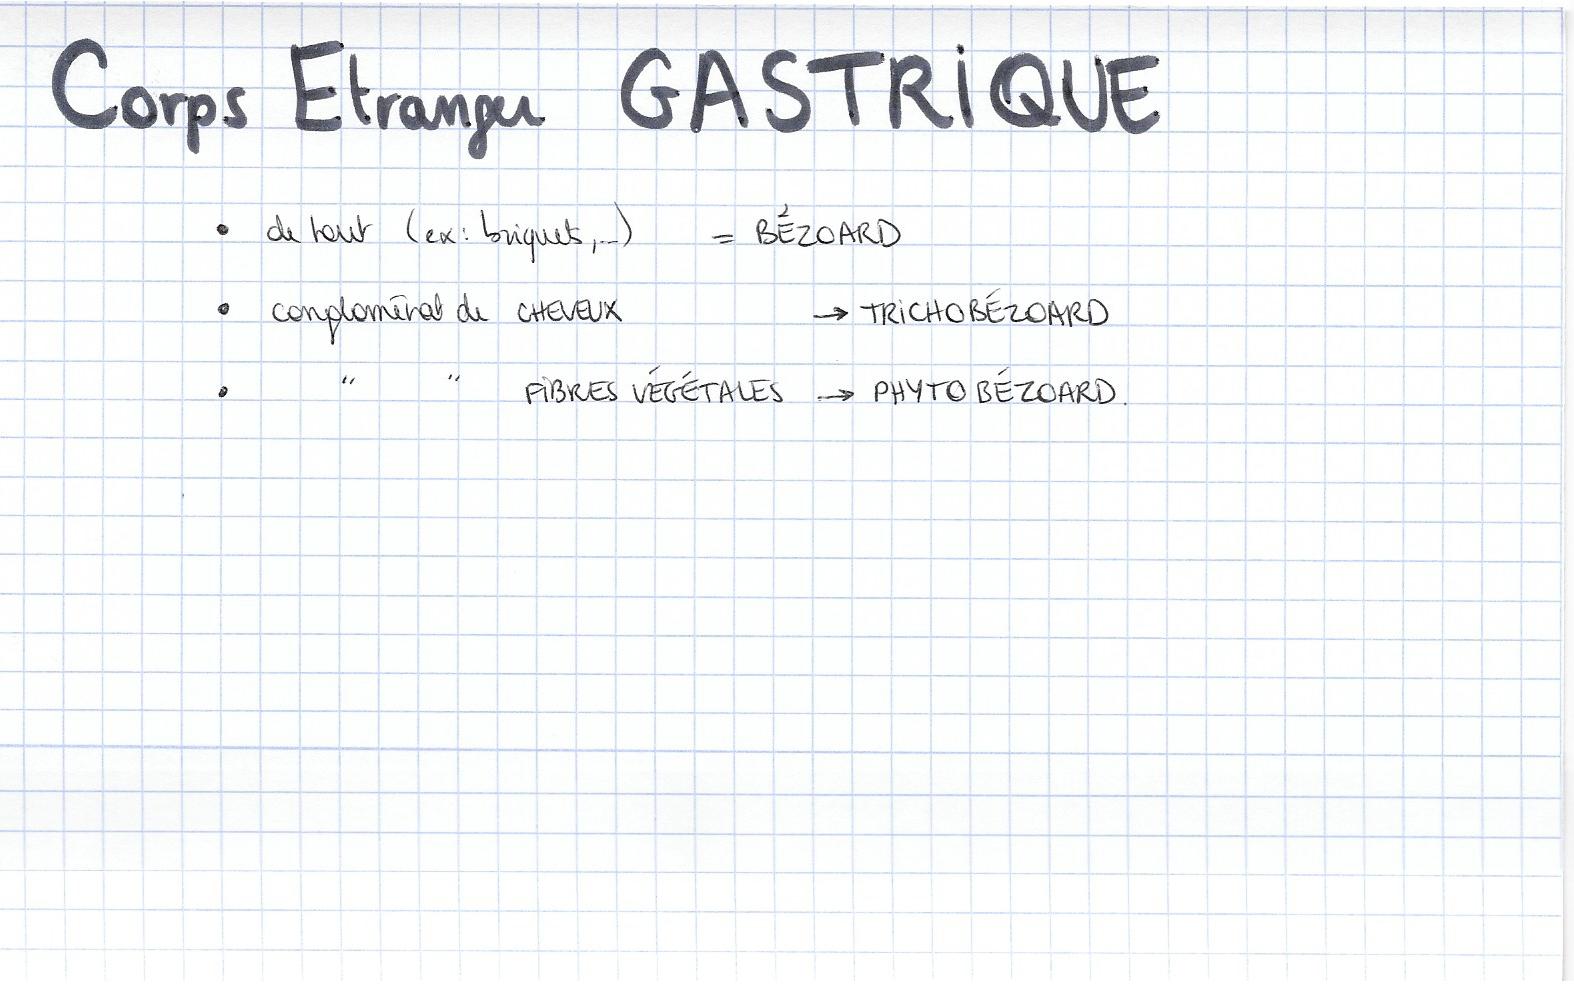 Corps Etranger GASTRIQUE
• de tout (ex: briquets,...) = BÉZOARD
• conglomérat de CHEVEUX → TRICHOBÉZOARD
• " " FIBRES VÉGÉTALES → PHYTOBÉZOARD.